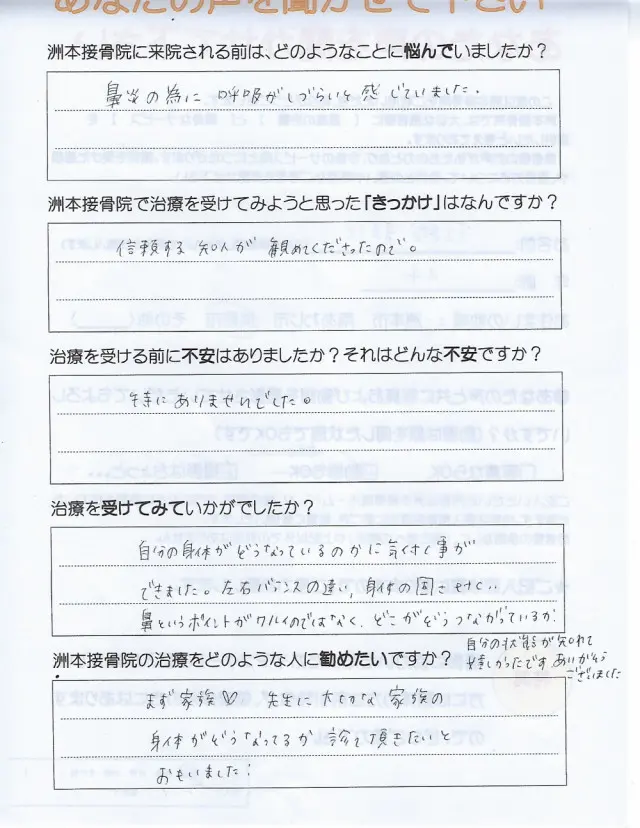 あなたの声を聞かせて下さい
洲本接骨院に来院される前は、どのようなことに悩んでいましたか?
鼻炎の為に 呼吸がしづらいと感じていました。
洲本接骨院で治療を受けてみようと思った「きっかけ」はなんですか?
信頼する 知人が 勧めてくださったので。
治療を受ける前に不安はありましたか?それはどんな不安ですか?
特にありませんでした。
治療を受けてみていかがでしたか?
自分の身体がどうなっているのかに気付く事が
できました。左右バランスの違い,身体の固させなく..
鼻というポイントがワルイのではなく、どこがどうつながっているか
自分の状態が知れて
嬉しかったです ありがとう
ございました
洲本接骨院の治療をどのような人に勧めたいですか?
まず家族♡ 先生に大切な家族の
身体がどうなってるか診て頂きたいと
おもいました!